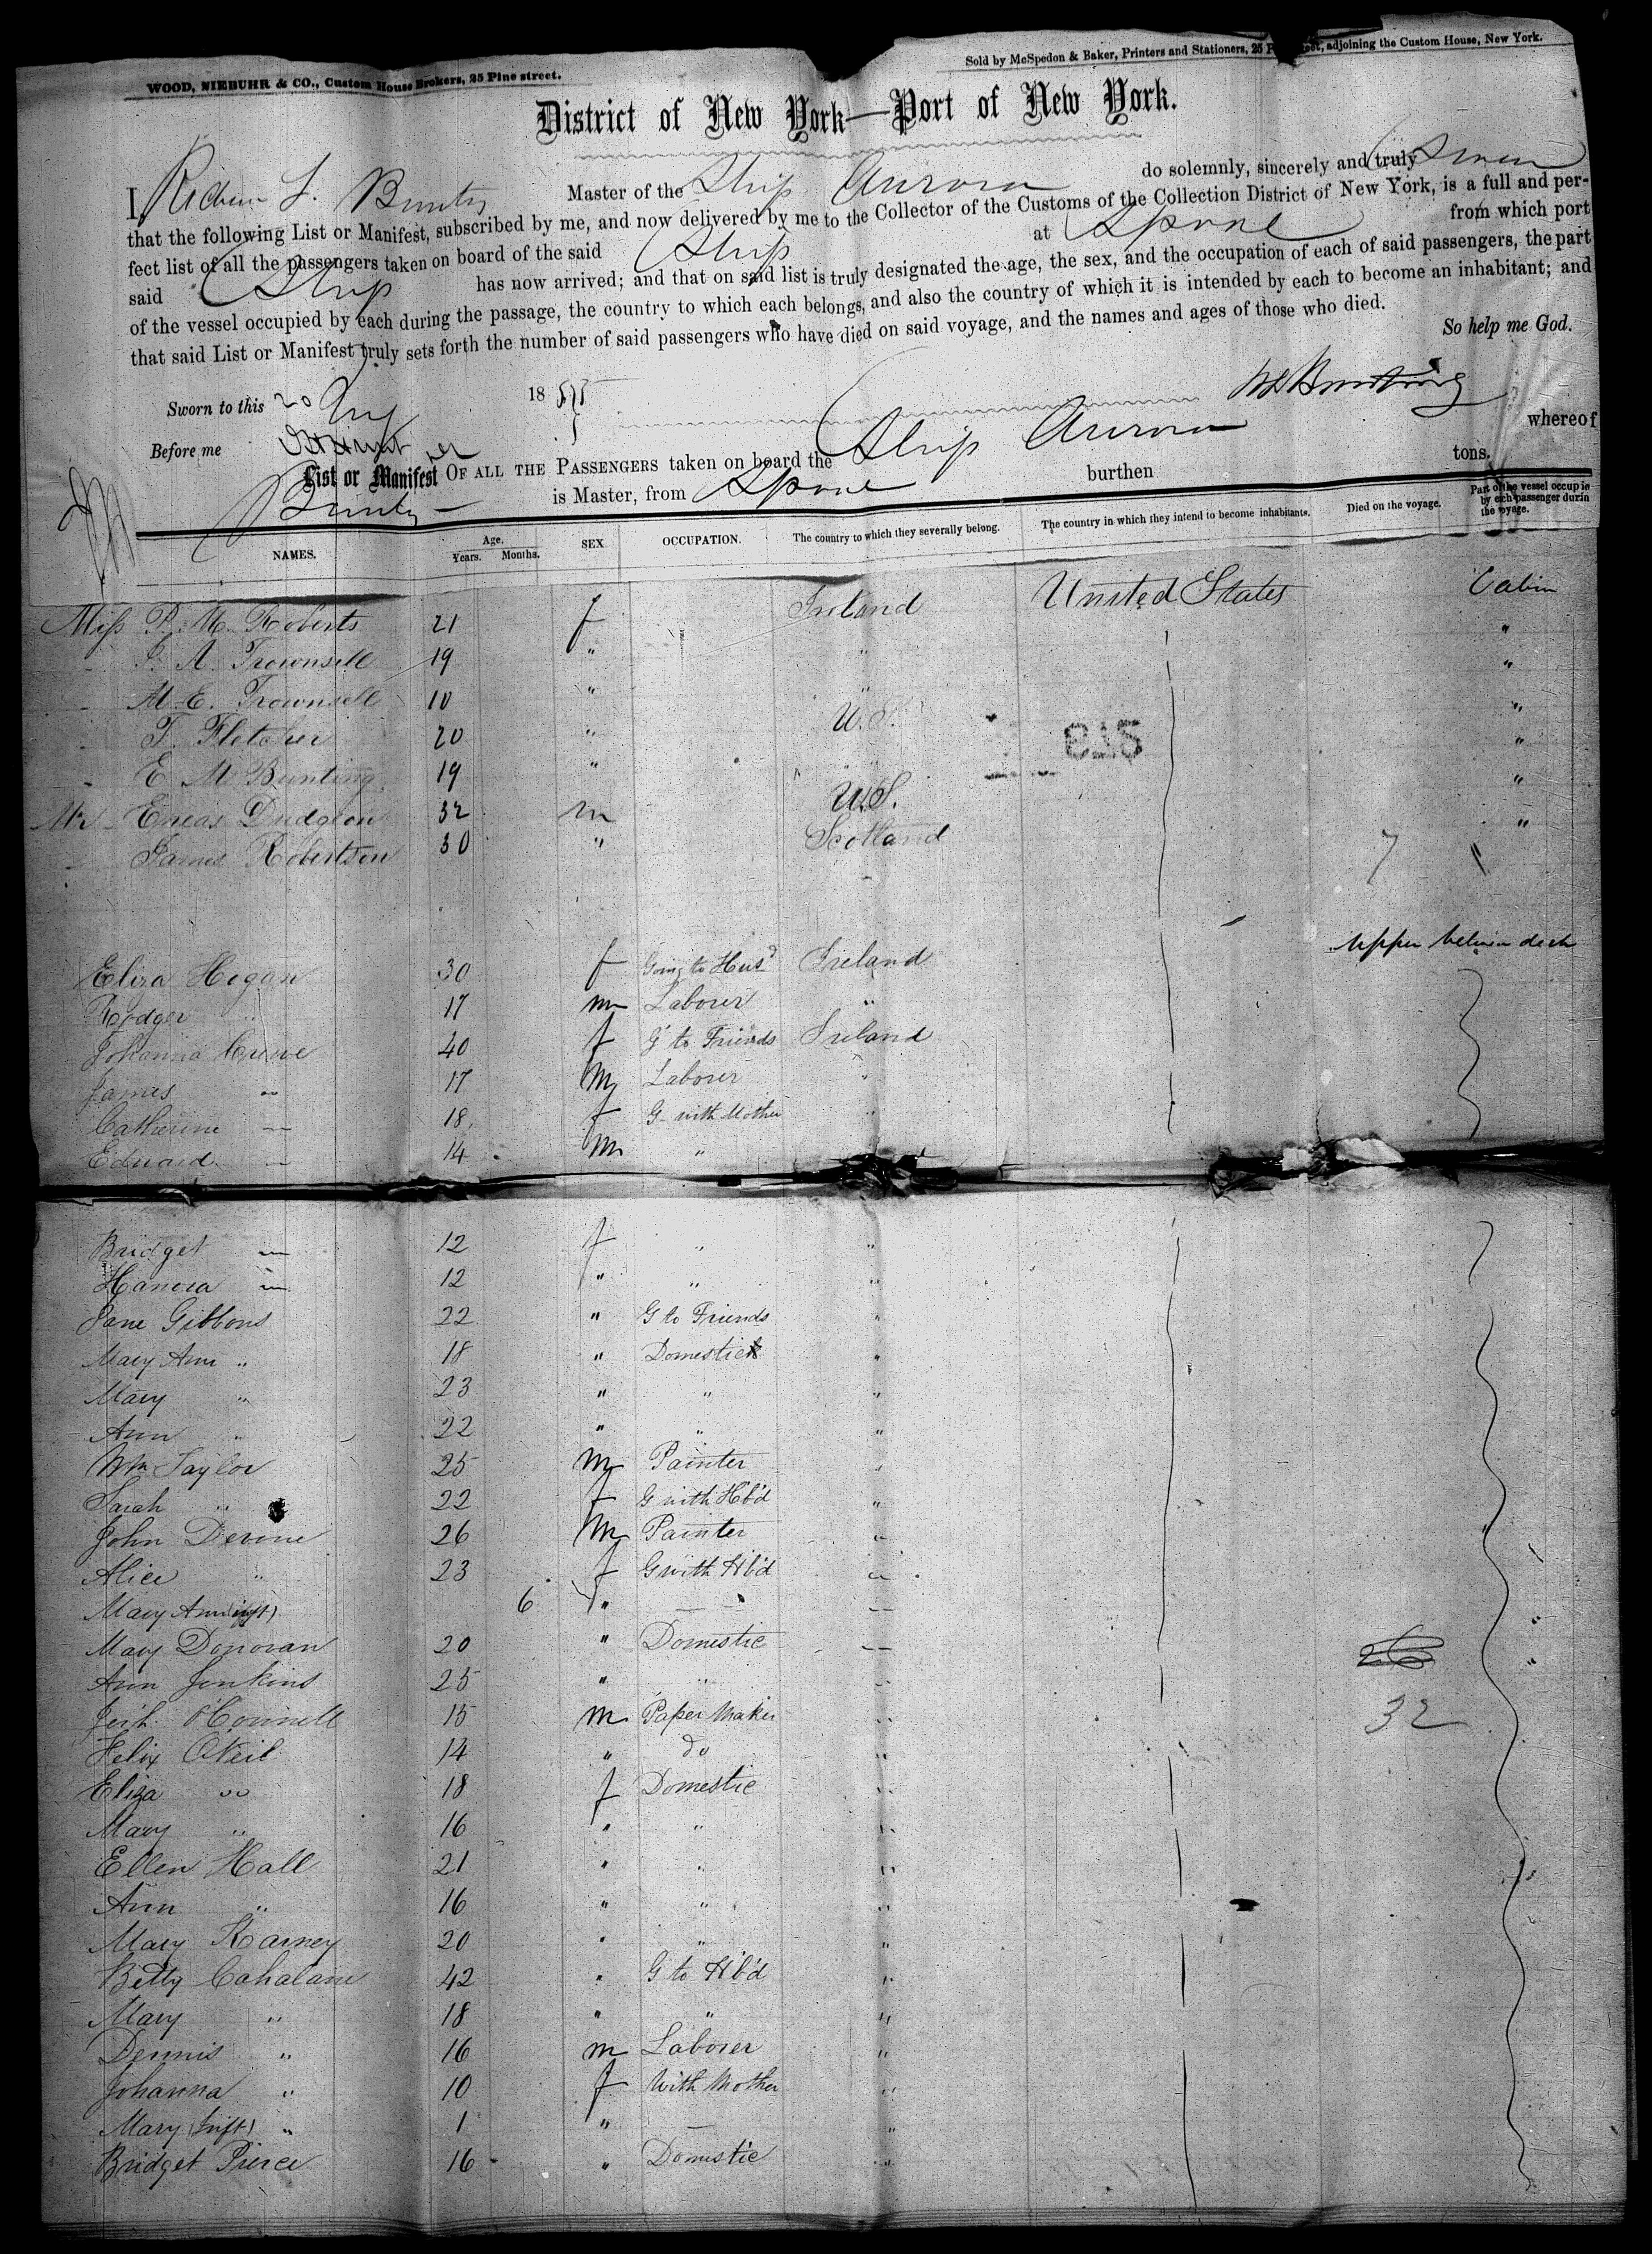 WOOD, NIEBUHR & CO., Custom House Brokers, 25 Pine street.
Sold by McSpedon & Baker, Printers and Stationers, 25 Pine street, adjoining the Custom House, New York.
District of New York—Port of New York.
I, F. Bunting Master of the Ship Aurora do solemnly, sincerely and truly swear
that the following List or Manifest, subscribed by me, and now delivered by me to the Collector of the Customs of the Collection District of New York, is a full and per-
fect list of all the passengers taken on board of the said Ship at from which port
said Ship has now arrived; and that on said list is truly designated the age, the sex, and the occupation of each of said passengers, the part
of the vessel occupied by each during the passage, the country to which each belongs, and also the country of which it is intended by each to become an inhabitant; and
that said List or Manifest truly sets forth the number of said passengers who have died on said voyage, and the names and ages of those who died.
So help me God.
Sworn to this 20 1855 Bunting
Before me
List or Manifest OF ALL THE PASSENGERS taken on board the Ship Aurora whereof
is Master, from burthen tons.
NAMES. Age. Years. Months. SEX OCCUPATION. The country to which they severally belong. The country in which they intend to become inhabitants. Died on the voyage. Part of the vessel occupied by each passenger during the voyage.
Miss P. M. Roberts 21 f Ireland United States Cabin
" A. Trownsell 19 " " "
" M. E. Trownsell 10 " " "
" T. Fletcher 20 " U.S. "
" E M Bunting 19 " "
Mr Eneas Dudgeon 32 m U.S. "
" James Robertson 30 " Scotland 7 "
Eliza Hogan 30 f Going to Husd Ireland Upper between deck
Rodger " 17 m Laborer "
Johanna Crewe 40 f G to Friends Ireland
James " 17 m Laborer "
Catherine " 18 f G with Mother "
Edward " 14 m "
Bridget " 12 f " "
Hanora " 12 " " "
Jane Gibbons 22 " G to Friends "
Mary Ann " 18 " Domestic "
Mary " 23 " " "
Ann " 22 " " "
Wm Taylor 25 m Painter "
Sarah " 22 f G with Hb'd "
John Devine 26 m Painter "
Alice " 23 f G with Hb'd "
Mary Ann (inft) 6 " "
Mary Donovan 20 " Domestic "
Ann Jenkins 25 " " "
Jerh. O'Connell 15 m Paper Maker " 32
Felix O'Neil 14 " do "
Eliza " 18 f Domestic "
Mary " 16 " " "
Ellen Hall 21 " " "
Ann " 16 " " "
Mary Karney 20 " " "
Betty Cahalane 42 " G to Hb'd "
Mary " 18 " " "
Dennis " 16 m Laborer "
Johanna " 10 f With Mother "
Mary (Inft) " 1 " "
Bridget Pierce 16 " Domestic "